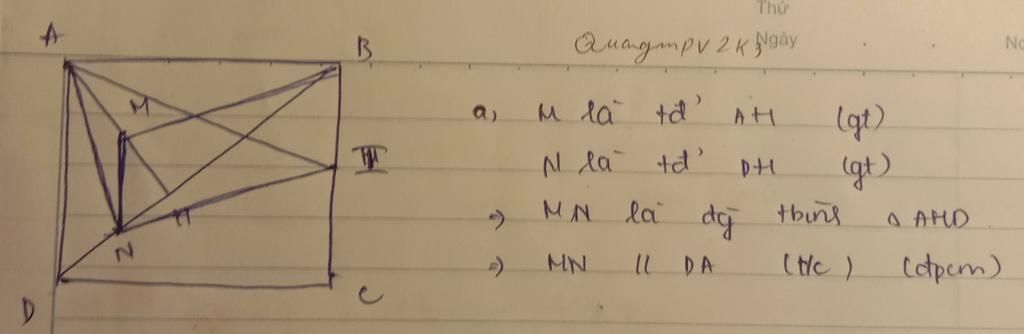 Thứ
Ngày
No
A
B
M
H
N
D
C
a, M là tđ' AH (gt)
N là tđ' DH (gt)
=) MN là đg tbình △ AHD
=) MN // DA (t/c) (đpcm)